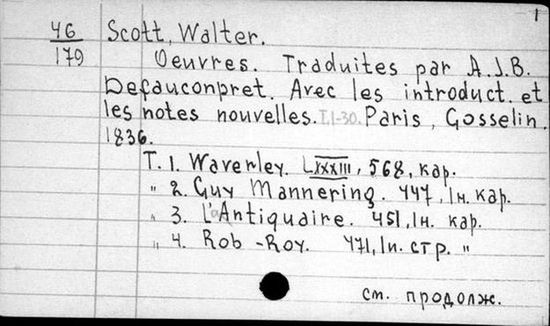 1
46 Scott, Walter.
179 Oeuvres. Traduites par A.J.B.
Defauconpret. Avec les introduct. et
les notes nouvelles. T.1-30. Paris, Gosselin.
1836.
T. 1. Waverley. LXXXIII, 568, кар.
" 2. Guy Mannering. 447, 1н. кар.
" 3. L'Antiquaire. 451, 1н. кар.
" 4. Rob-Roy. 471, 1н. стр. "
см. продолж.